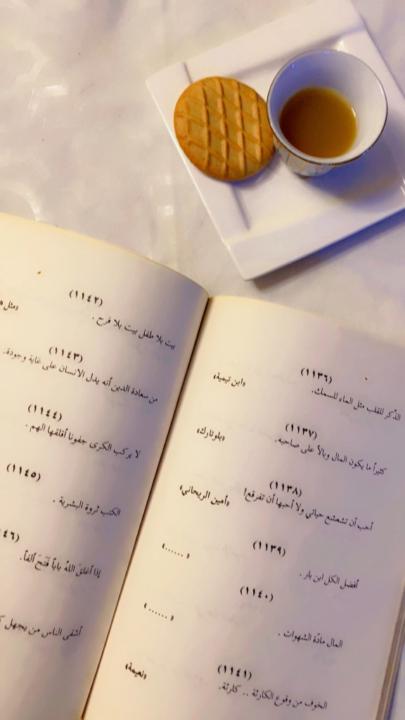 (١١٣٦)
الذكر للقلب مثل الماء للسمك.
«ابن تيمية»
(١١٣٧)
كثيراً ما يكون المال وبالاً على صاحبه.
«بلوتارك»
(١١٣٨)
أحب أن تشعشع حياتي ولا أحبها أن تفرقع!
«أمين الريحاني»
(١١٣٩)
أفضل الكل ابن بار.
«......»
(١١٤٠)
المال مادّة الشهوات.
«......»
(١١٤١)
الخوف من وقوع الكارثة .. كارثة.
«نعيمة»
(١١٤٢)
بيت بلا طفل بيت بلا فرح.
«مثل
(١١٤٣)
من سعادة الدين أنه يدل الانسان على غاية وجودة.
(١١٤٤)
لا يركب الكرى جفونا أقلقها الهم.
(١١٤٥)
الكتب ثروة البشرية.
٤٦)
إذا أغلق اللهُ باباً فَتَحَ ألفاً.
أشقى الناس من يجهل